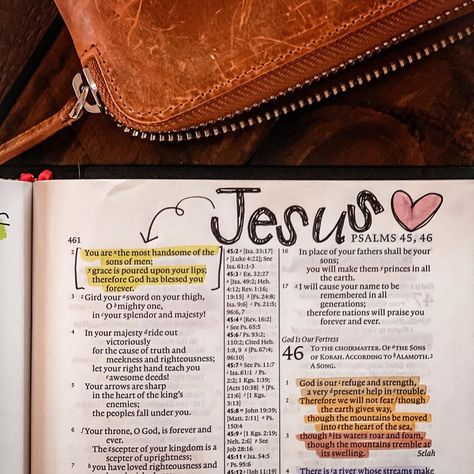 Jesus
461
PSALMS 45, 46
2 You are the most handsome of the
sons of men;
grace is poured upon your lips;
therefore God has blessed you
forever.
3 Gird your sword on your thigh,
O mighty one,
in your splendor and majesty!
4 In your majesty ride out
victoriously
for the cause of truth and
meekness and righteousness;
let your right hand teach you
awesome deeds!
5 Your arrows are sharp
in the heart of the king's
enemies;
the peoples fall under you.
6 Your throne, O God, is forever and
ever.
The scepter of your kingdom is a
scepter of uprightness;
7 you have loved righteousness and
45:2 [Isa. 33:17]
[Luke 4:22]; See
Isa. 61:1-3
45:3 Ex. 32:27
[Isa. 49:2; Heb.
4:12; Rev. 1:16;
19:15] [Ps. 24:8;
Isa. 9:6] Ps. 21:5;
96:6, 7
45:4 [Rev. 16:2]
See Ps. 65:5
45:6 Ps. 93:2;
110:2; Cited Heb.
1:8, 9 [Ps. 67:4;
96:10]
45:7 See Ps. 11:7
Isa. 61:1 Ps.
2:2; 1 Kgs. 1:39;
[Acts 10:38] Ps.
21:6
45:8 John 19:39;
[Matt. 2:11] Ps.
150:4
45:9 [1 Kgs. 2:19;
Neh. 2:6] See
Job 28:16
16 In place of your fathers shall be your
sons;
you will make them princes in all
the earth.
17 I will cause your name to be
remembered in all
generations;
therefore nations will praise you
forever and ever.
God Is Our Fortress
46 TO THE CHOIRMASTER. OF THE SONS
OF KORAH. ACCORDING TO ALAMOTH.
A SONG.
1 God is our refuge and strength,
a very present help in trouble.
2 Therefore we will not fear though
the earth gives way,
though the mountains be moved
into the heart of the sea,
3 though its waters roar and foam,
though the mountains tremble at
its swelling. Selah
4 There is a river whose streams make